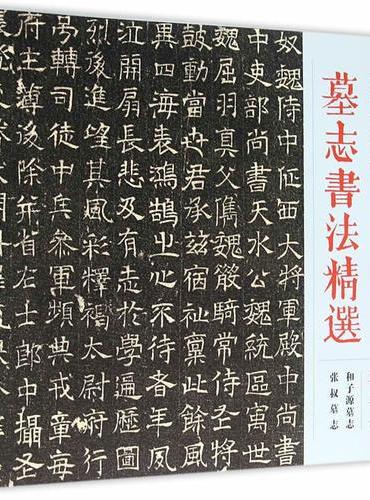 墓志書法精選
和子源墓志
张叔墓志
奴魏侍中征西大將軍殿中尚書
中吏部尚書天水公魏統寓世
魏屈羽真父儁魏散騎常侍將
鼓動當世君承茲宿祉稟此餘風
異四海表鴻鵠之心來待者
泣開扇長悲及有志於學遍歷圖
烈後進望其風彩釋褐太尉府行
轉司徒中兵參軍頻典戎章每
府主簿後除并省右士郎中攝